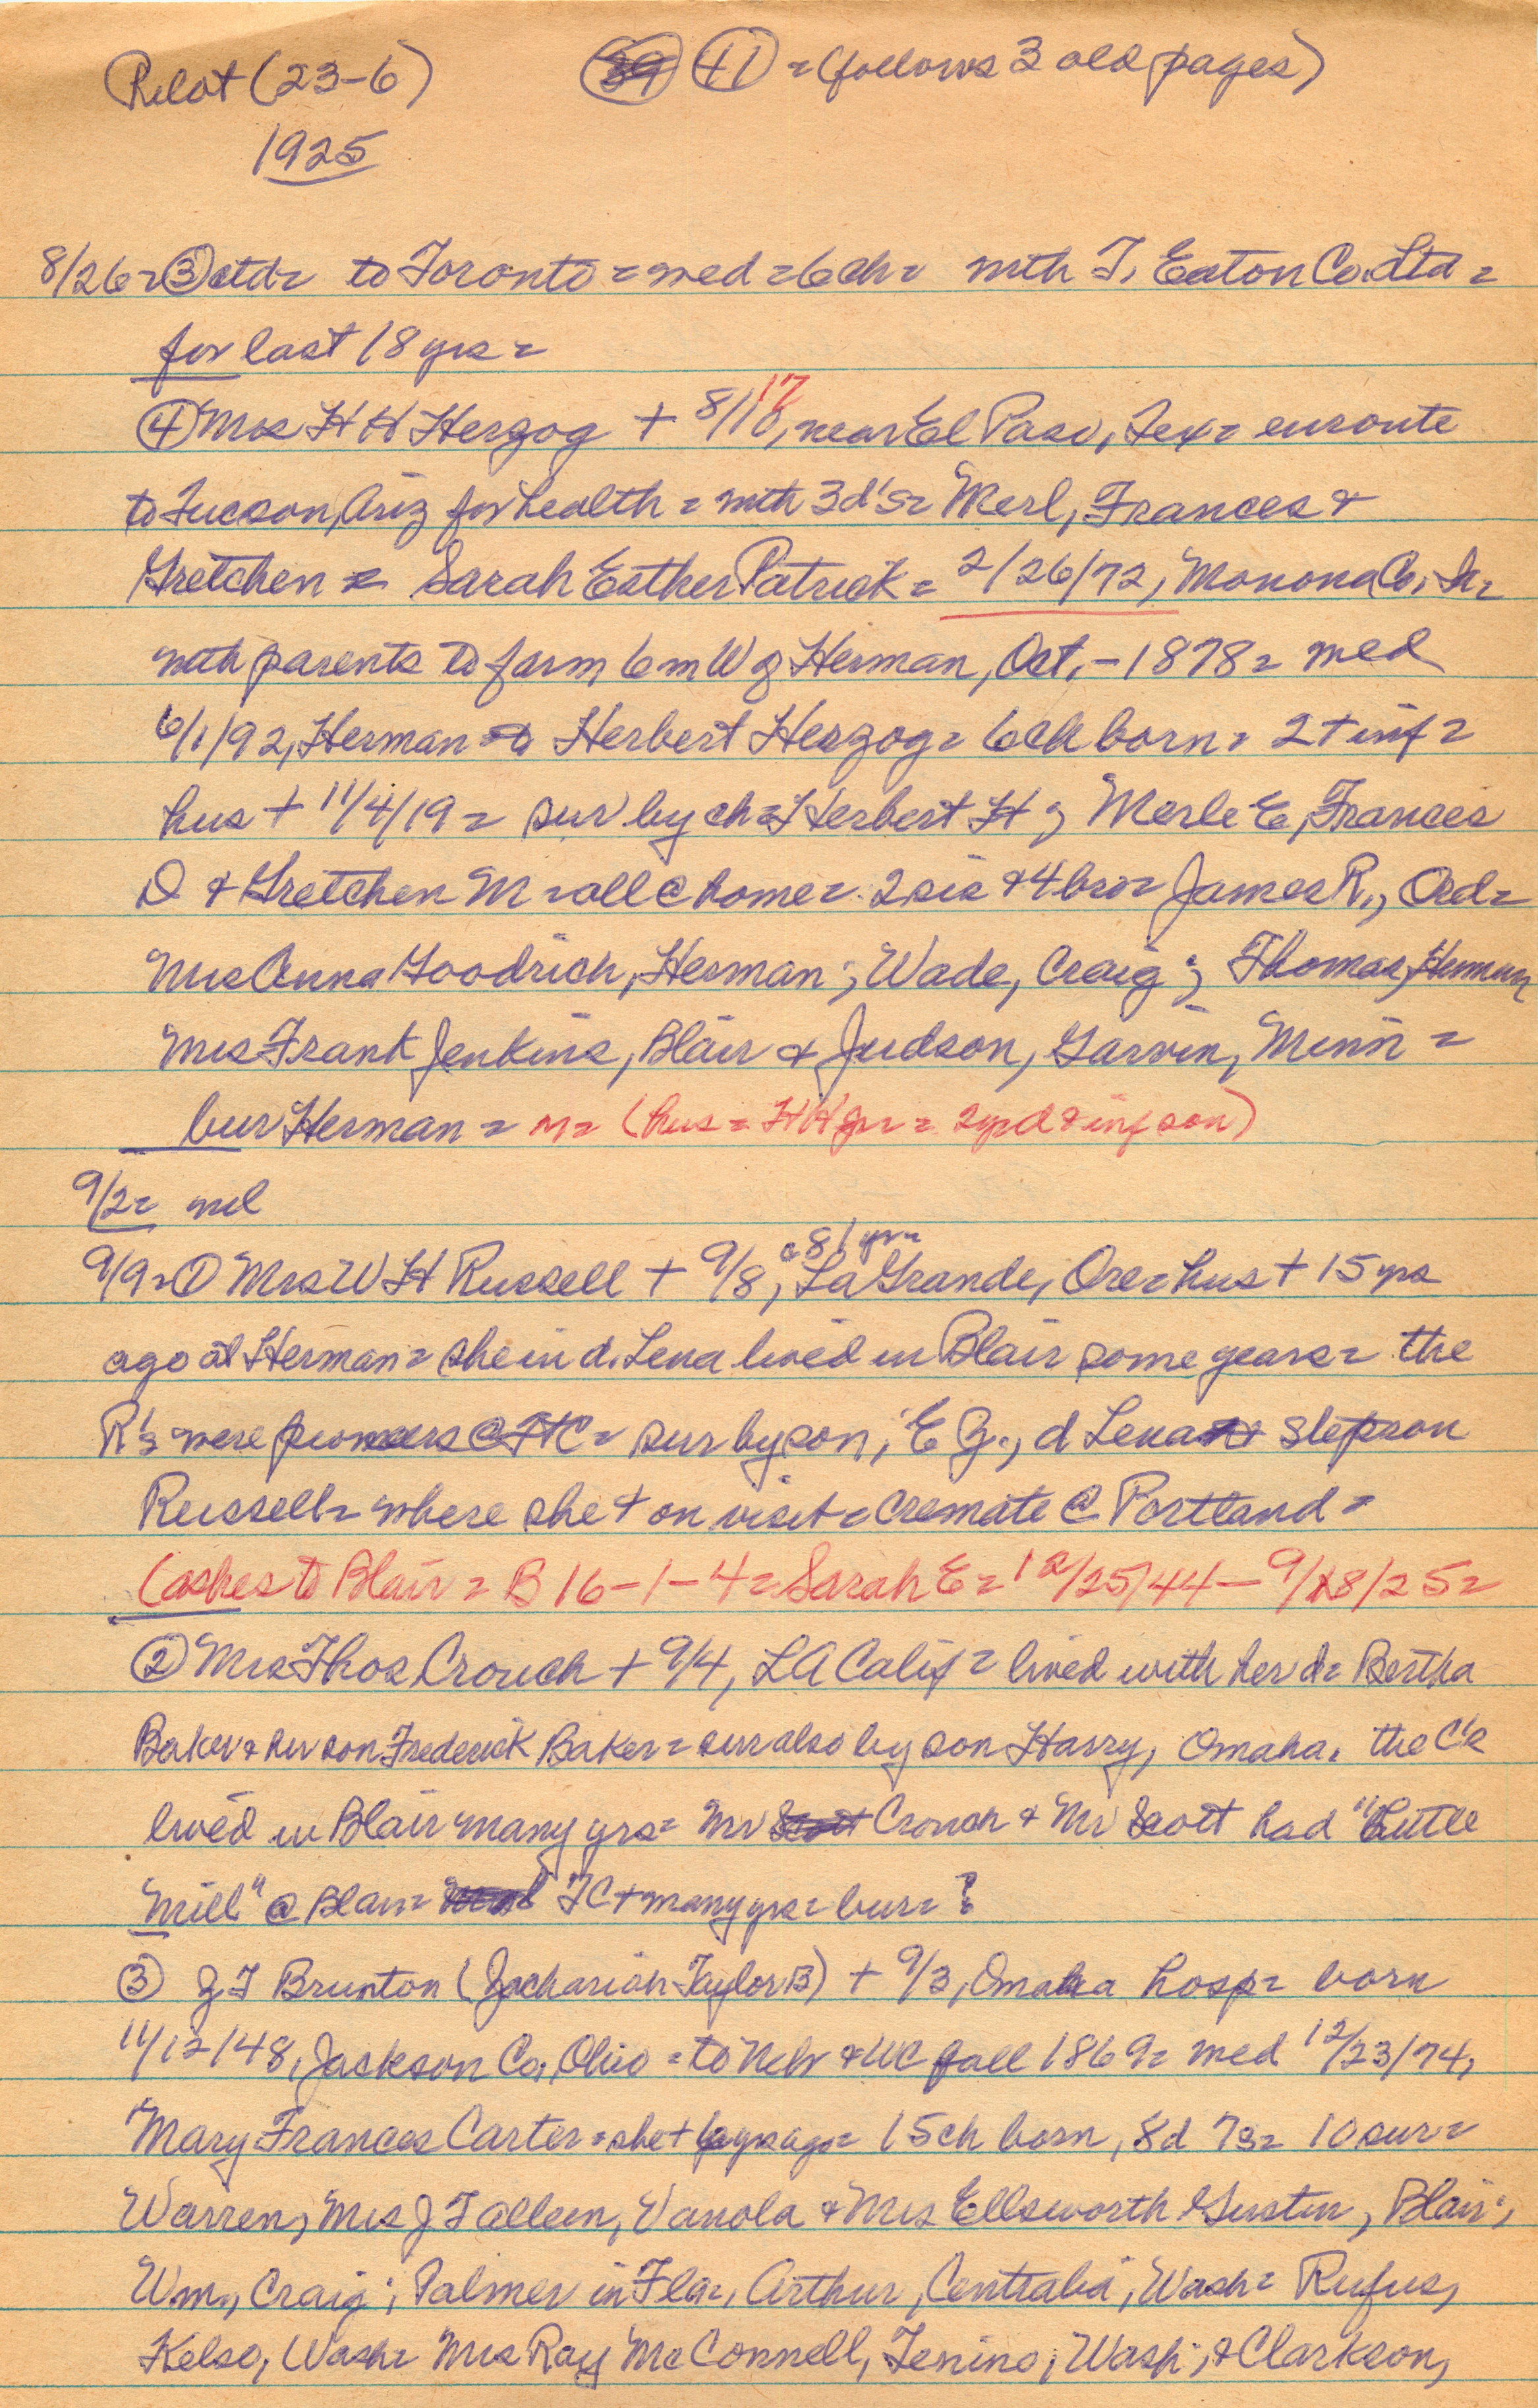 Pilot (23-6) 39 41 = (follows 3 old pages)
1925
8/26 = ③ ctd = to Toronto = med = 6 ch = with T. Eaton Co. Ltd =
for last 18 yrs =
17
④ Mrs H H Herzog + 8/18, near El Paso, Tex = enroute
to Tucson, Ariz for health = with 3 d's = Merl, Frances &
Gretchen = Sarah Esther Patrick = 2/26/72, Monona Co, Ia =
with parents to farm 6 m W of Herman, Oct. - 1878 = med
6/1/92, Herman to Herbert Herzog = 6 ch born = 2 + inf =
hus + 11/4/19 = sur by ch = Herbert H; Merle E, Frances
D & Gretchen M = all @ home = 2 sis & 4 bro = James R., Ord =
Mrs Anna Goodrich, Herman; Wade, Craig; Thomas, Herman
Mrs Frank Jenkins, Blair & Judson, Garvin, Minn =
bur Herman = m = (hus = HH gr = 2 yr d & inf son)
9/2 = nil
a 81 yrs
9/9 = ① Mrs W H Russell + 9/8, La Grande, Ore = hus + 15 yrs
ago at Herman = she & d. Lena lived in Blair some years = the
R's were pioneers @ FtC = sur by son, E G., d Lena & stepson
Russell = where she + on visit = cremate @ Portland =
(ashes to Blair = B 16-1-4 = Sarah E = 12/25/44 - 9/8/25 =
② Mrs Thos Crouch + 9/4, LA Calif = lived with her d = Bertha
Baker & her son Frederick Baker = sur also by son Harry, Omaha. the C's
lived in Blair many yrs = Mr Scott Crouch & Mr Scott had "Little
Mill" @ Blair = TC + many yrs = bur = ?
③ Z T Brunton (Zachariah Taylor B) + 9/3, Omaha hosp = born
11/12/48, Jackson Co, Ohio = to Nebr & WC fall 1869 = med 12/23/74,
Mary Frances Carter = she + 6 yrs ago = 15 ch born, 8 d 7 s = 10 sur =
Warren, Mrs J T Alleen, Vanola & Mrs Ellsworth Gustin, Blair;
Wm., Craig; Palmer in Fla =, Arthur, Centralia, Wash = Rufus,
Kelso, Wash = Mrs Ray McConnell, Tenino, Wash; & Clarkson,